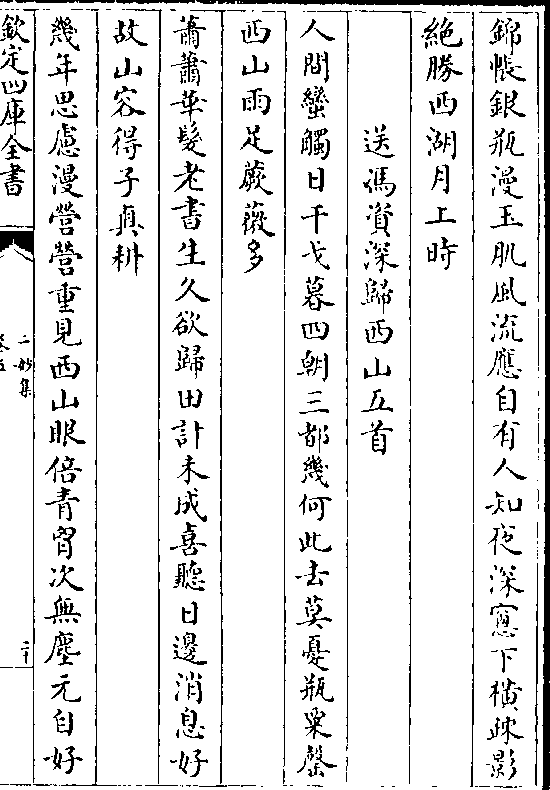 錦帳銀瓶漫玉肌風流應自有人知夜深窻下橫疎影
絶勝西湖月上時
送馮資深歸西山五首
人間蠻觸日干戈暮四朝三都幾何此去莫憂瓶粟罄
西山雨足蕨薇多
蕭蕭華髮老書生久欲歸田計未成喜聽日邊消息好
故山容得子真耕
幾年思慮漫營營重見西山眼倍青胷次無塵元自好
欽定四庫全書
二妙集
卷五
二十